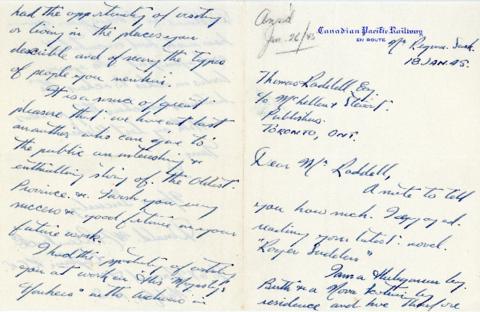 Ans'd
Jan. 26/45
Canadian Pacific Railway
EN ROUTE
Nr Regina Sask.
18 JAN 45.
Thomas Raddall Esq
c/o McClelland & Stewart
Publishers
TORONTO, ONT.
Dear Mr Raddall,
A note to tell
you how much I enjoyed
reading your latest novel
"Roger Sudden"
I am a Haligonian by
Birth & a Nova Scotian by
residence and have therefore
had the opportunity of visiting
or living in the places you
describe and of seeing the types
of people you mention.
It is a source of great
pleasure that we have at last
an author who can give to
the public an interesting &
enthralling story of the Oldest
Province & I wish you every
success & good fortune in your
future work.
I had the opportunity of
you at work in "His Majesty's
Yankees" with Archives in